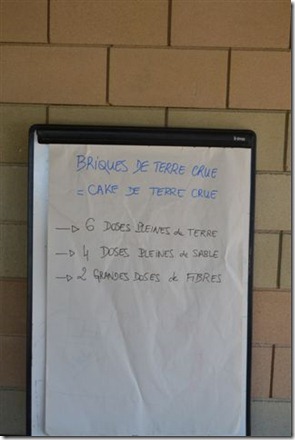 BRIQUES DE TERRE CRUE
= CAKE DE TERRE CRUE
→ 6 DOSES PLEINES de TERRE
→ 4 DOSES PLEINES de SABLE
→ 2 GRANDES DOSES de FIBRES